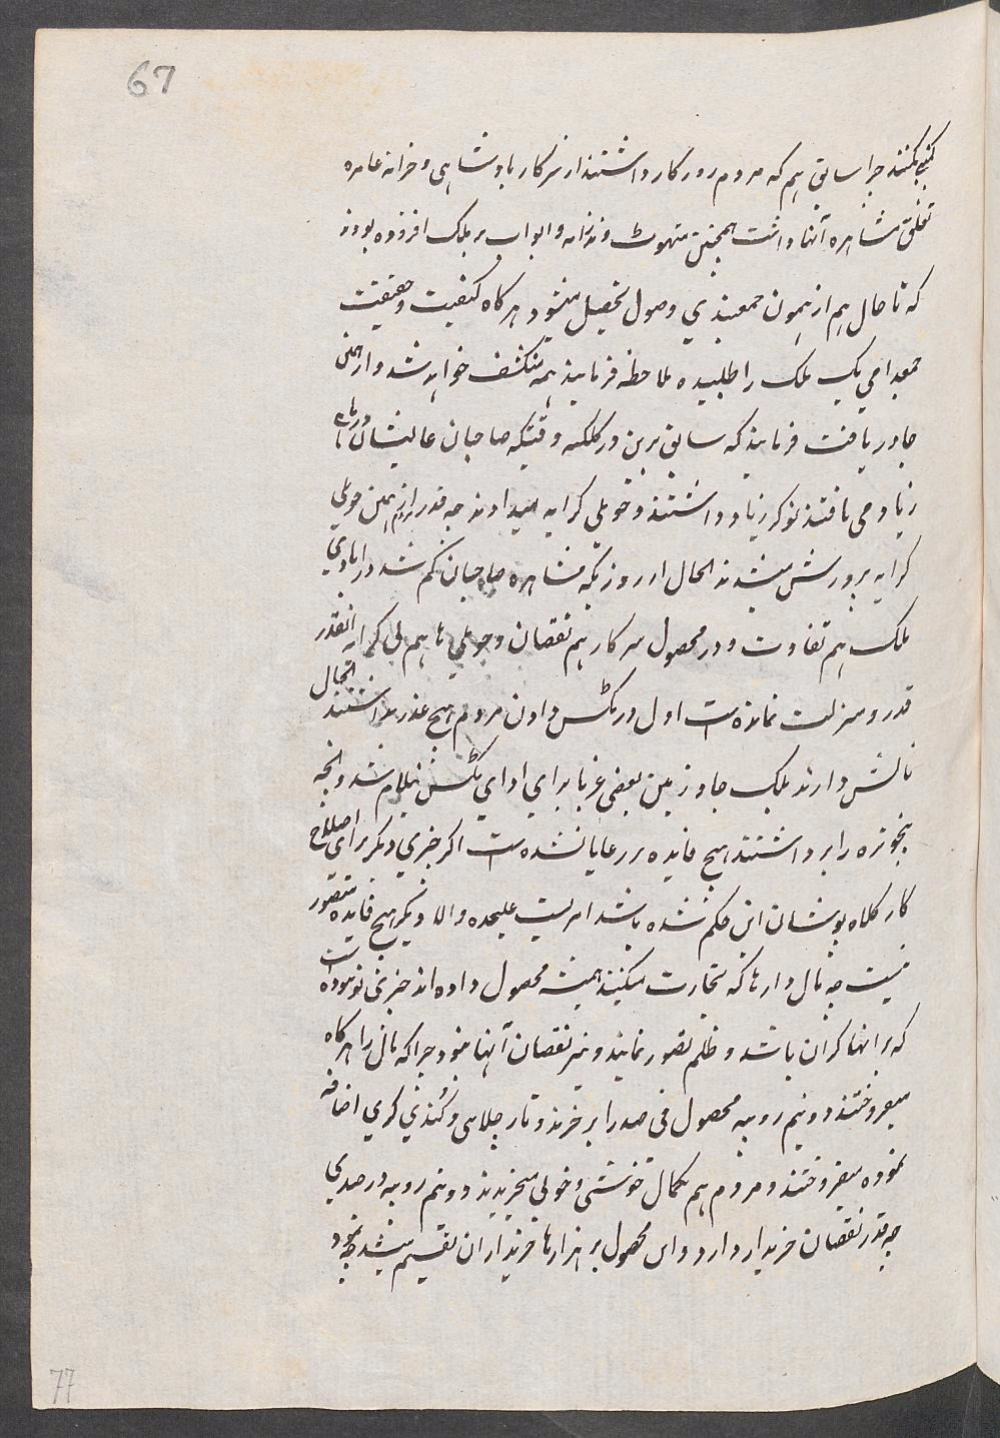 67
کمپنی بکنند چرا سابق هم که مردم روزکار داشتند از سرکار بادشاهی و خزانه عامره
تعلق مشاهره آنها داشت همچنین تهوت و نذرانه و ابواب بر ملک افزوده بودند
که تا حال هم از همون جمعبندي وصول تحصیل میشود هرکاه کیفیت و حقیقت
جمعبدامي یک ملک را طلبیده ملاحظه فرمایند همه منکشف خواهد شد و از همین
جا دریافت فرمایند که سابق برین در کلکته وقتیکه صاحبان عالیشان درماهه
زیاد می یافتند نوکر زیاد داشتند و حویلی کرایه میدادند چه قدر مردم از همین حویلی
کرایه پرورش میشدند الحال از روزیکه مشاهره صاحبان کم شد در ابادي
ملک هم تفاوت و در محصول سرکار هم نقصان و حویلي ها هم بي کرایه انقدر
قدر و منزلت نمانده است اول در تکس دادن مردم هیچ عذر نداشتند الحال
نالش دارند بلک جا و زمین بعضی غربا براي اداي تکس نیلام شد و انچه
پنجوتره را برداشتند هیچ فایده بر رعایا نشده است اکر چیزي دیکر براي اصلاح
کار کلاه پوشان این حکم شده باشد امریست علیحده والا دیکر هیچ فایده متصور
نیست چه مال دارها که تجارت میکنند همیشه محصول داده اند چیزي نو نبوده است
که بر انها کران باشد و ظلم تصور نمایند و نیز نقصان آنها نبود چرا که مال را هرکاه
میفروختند دو نیم روپیه محصول فی صد را بر خرید و تار چلاسی و کندي کري اضافه
نموده میفروختند و مردم هم بکمال خوشي و خولي میخریدند دو نیم روپیه در صدي
چه قدر نقصان خریدار دارد و این محصول بر هزارها خریداران تقسیم میشد چه نمود
77